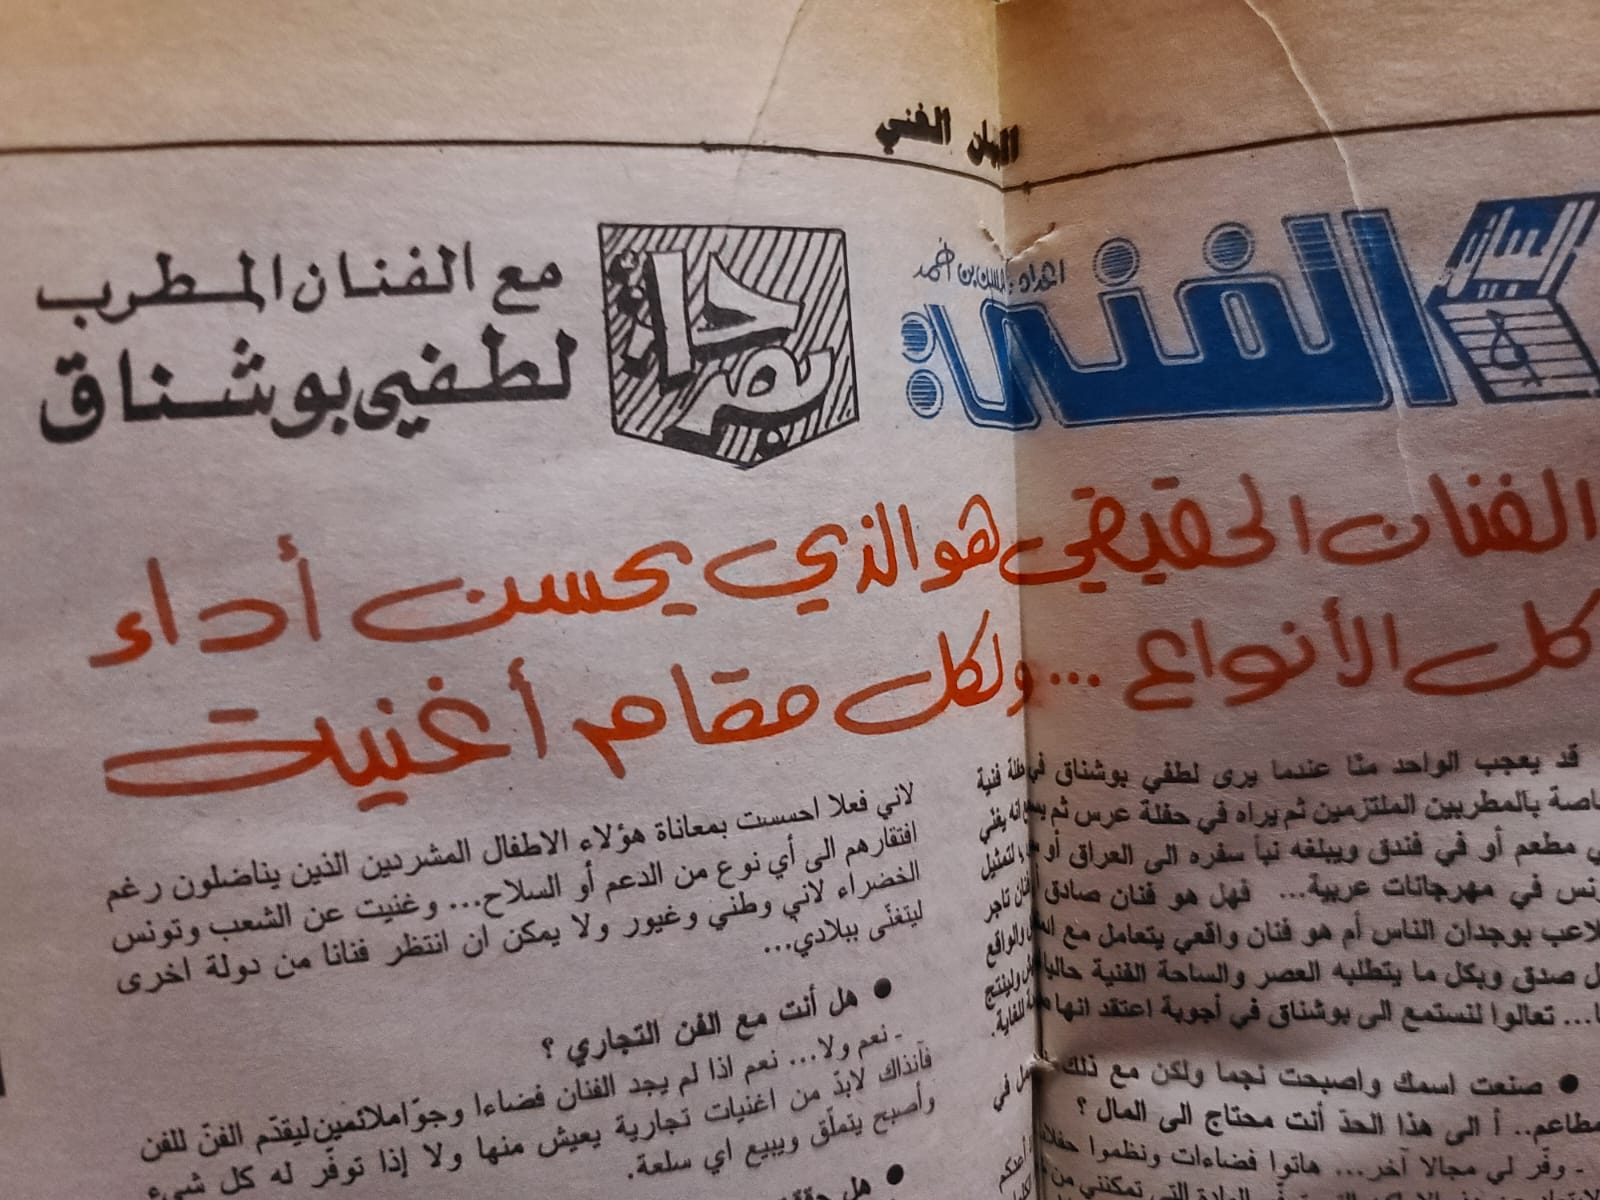 البيان الفني
البيان الفني:
اعداد: حسن بن احمد
بصراحة
مع الفنان المطرب
لطفي بوشناق
الفنان الحقيقي هو الذي يحسن أداء
كل الأنواع ... ولكل مقام أغنية
قد يعجب الواحد منّا عندما يرى لطفي بوشناق في حفلة فنية
خاصة بالمطربين الملتزمين ثم يراه في حفلة عرس ثم يسمع انه يغني
في مطعم أو في فندق ويبلغه نبأ سفره الى العراق أو لتمثيل
تونس في مهرجانات عربية... فهل هو فنان صادق فنان تاجر
يتلاعب بوجدان الناس أم هو فنان واقعي يتعامل مع والواقع
بكل صدق وبكل ما يتطلبه العصر والساحة الفنية حاليا ولينتج
... تعالوا لنستمع الى بوشناق في أجوبة اعتقد انها للغاية.
● صنعت اسمك واصبحت نجما ولكن مع ذلك في
مطاعم.. أ الى هذا الحدّ أنت محتاج الى المال ؟
ـ وفّر لي مجالا آخر... هاتوا فضاءات ونظموا حفلات
المادة التي تمكنني من
لاني فعلا احسست بمعاناة هؤلاء الاطفال المشردين الذين يناضلون رغم
افتقارهم الى أي نوع من الدعم أو السلاح... وغنيت عن الشعب وتونس
الخضراء لاني وطني وغيور ولا يمكن ان انتظر فنانا من دولة اخرى
ليتغنّى ببلادي...
● هل أنت مع الفن التجاري ؟
ـ نعم ولا... نعم اذا لم يجد الفنان فضاءا وجوّا ملائمين ليقدّم الفنّ للفن
فآنذاك لابدّ من اغنيات تجارية يعيش منها ولا إذا توفّر له كل شيء
وأصبح يتملّق ويبيع اي سلعة.
● هل